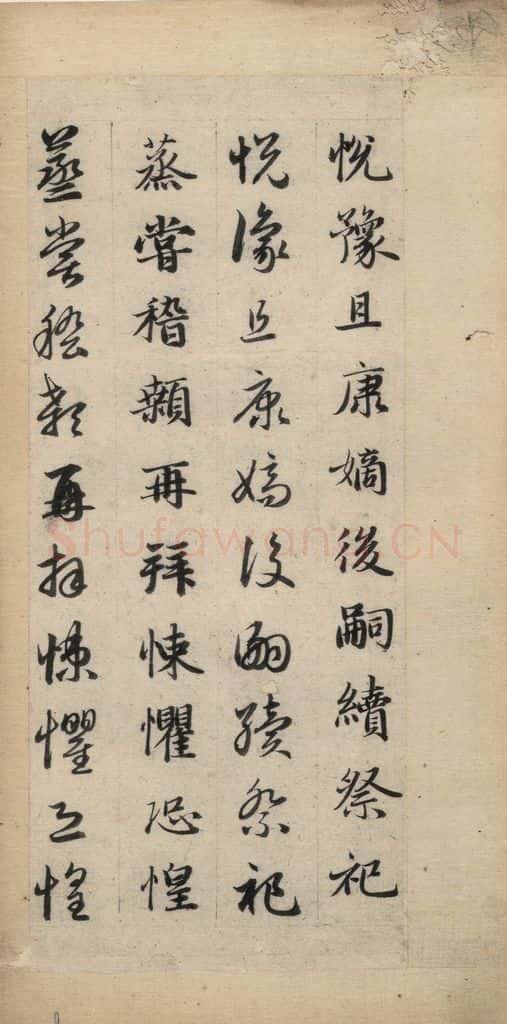 悅豫且康嫡後嗣續祭祀
悅豫且康嫡後嗣續祭祀
蒸嘗稽顙再拜悚懼恐惶
蒸嘗稽顙再拜悚懼恐惶
Shufawang.CN